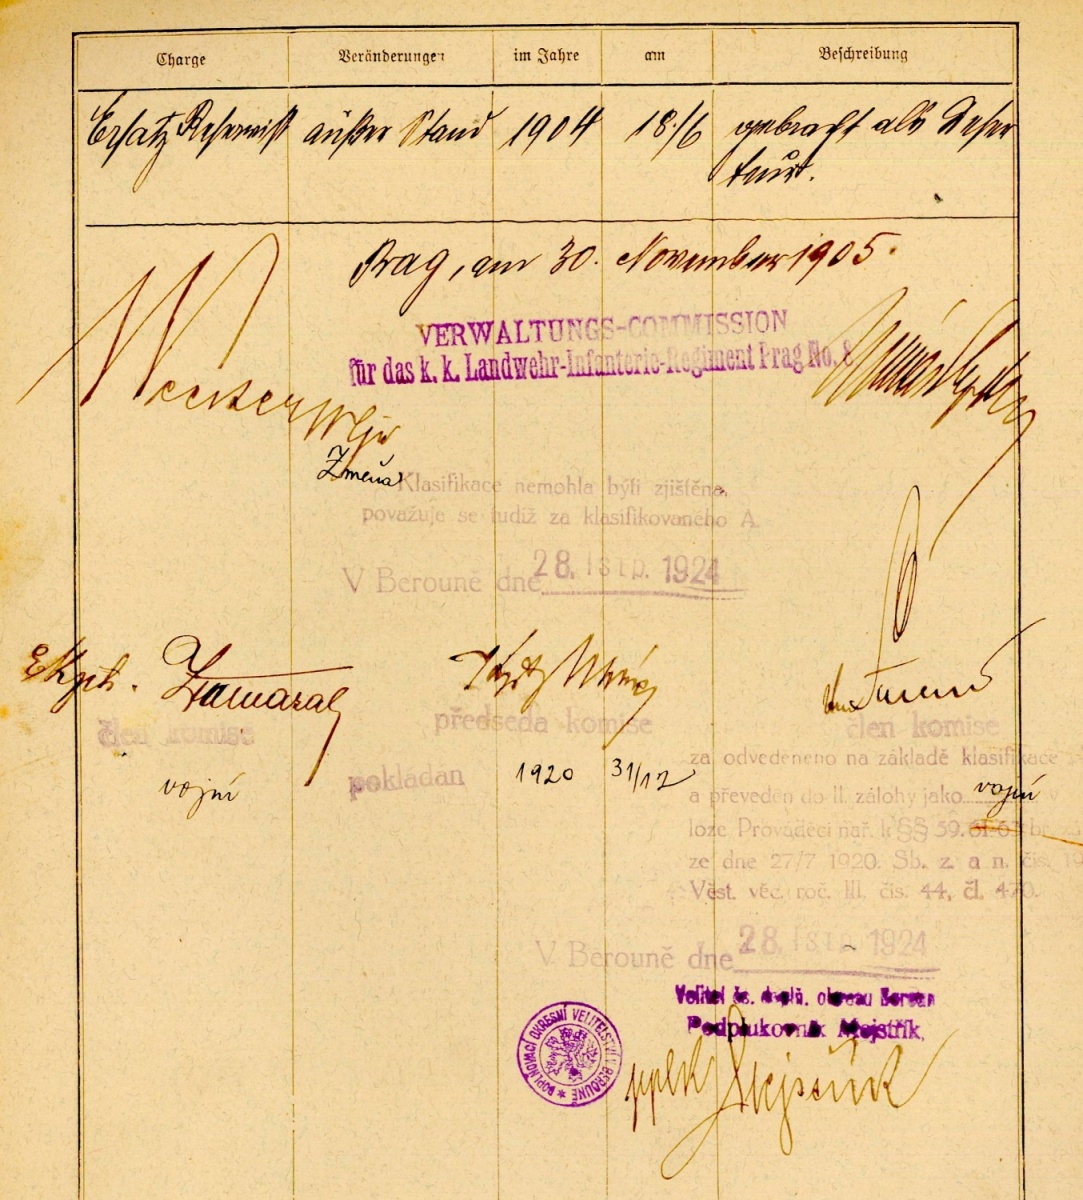 Charge Veränderungen im Jahre am Beschreibung
Ersatz Reservist außer Stand 1904 18./6 gebracht als Deser
teur.
Prag, am 30. November 1905.
VERWALTUNGS-COMMISSION
für das k. k. Landwehr-Infanterie-Regiment Prag No. 8
Změna
Klasifikace nemohla býti zjištěna,
považuje se tudiž za klasifikovaného A.
V Berouně dne 28. srp. 1924
člen komise předseda komise člen komise
za odvedeného na základě klasifikace
vojín pokládán 1920 31/12
a převeden do II. zálohy jako vojín v
loze Prováděcí nař. k §§ 59. 61-63
ze dne 27/7 1920. Sb. z. a n. čís.
Věst. věc. roč. III. čís. 44, čl. 470.
V Berouně dne 28. srp. 1924
Velitel čs. dopln. okresu Beroun
Podplukovník Mejstřík,
DOPLŇOVACÍ OKRESNÍ VELITELSTVÍ BEROUNĚ
pplk Mejstřík